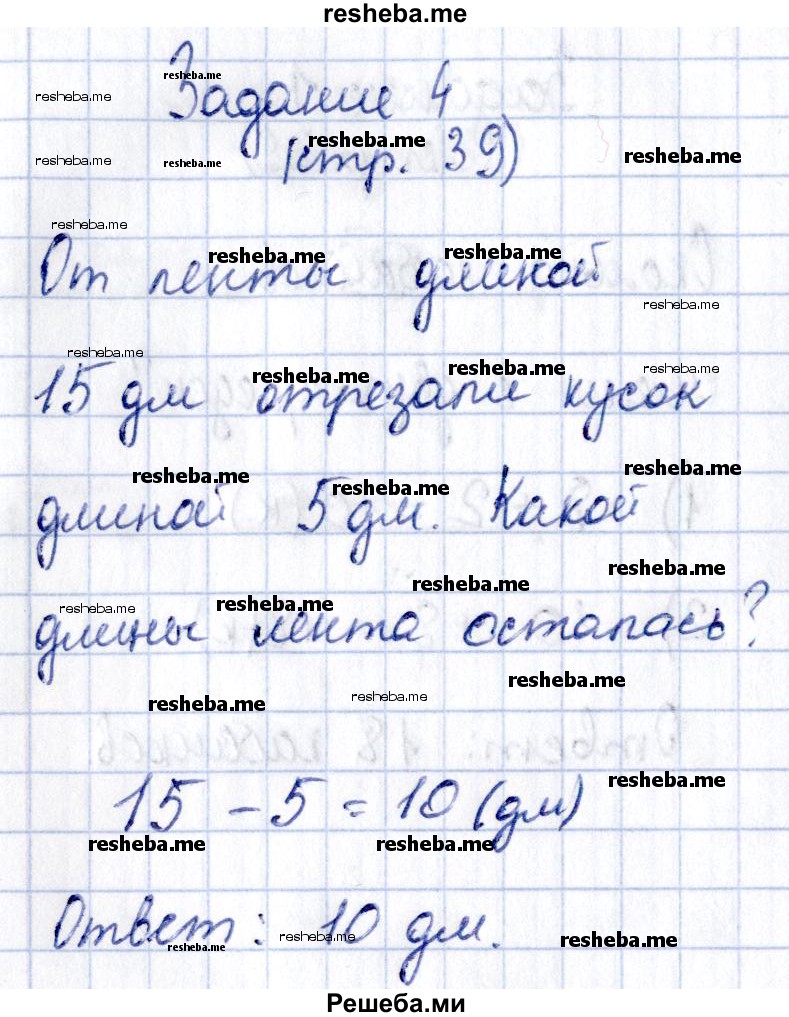 resheba.me
Задание 4
(стр. 39)
От ленты длиной
15 дм отрезали кусок
длиной 5 дм. Какой
длины лента осталась?
15 - 5 = 10 (дм)
Ответ: 10 дм.
Решеба.ми